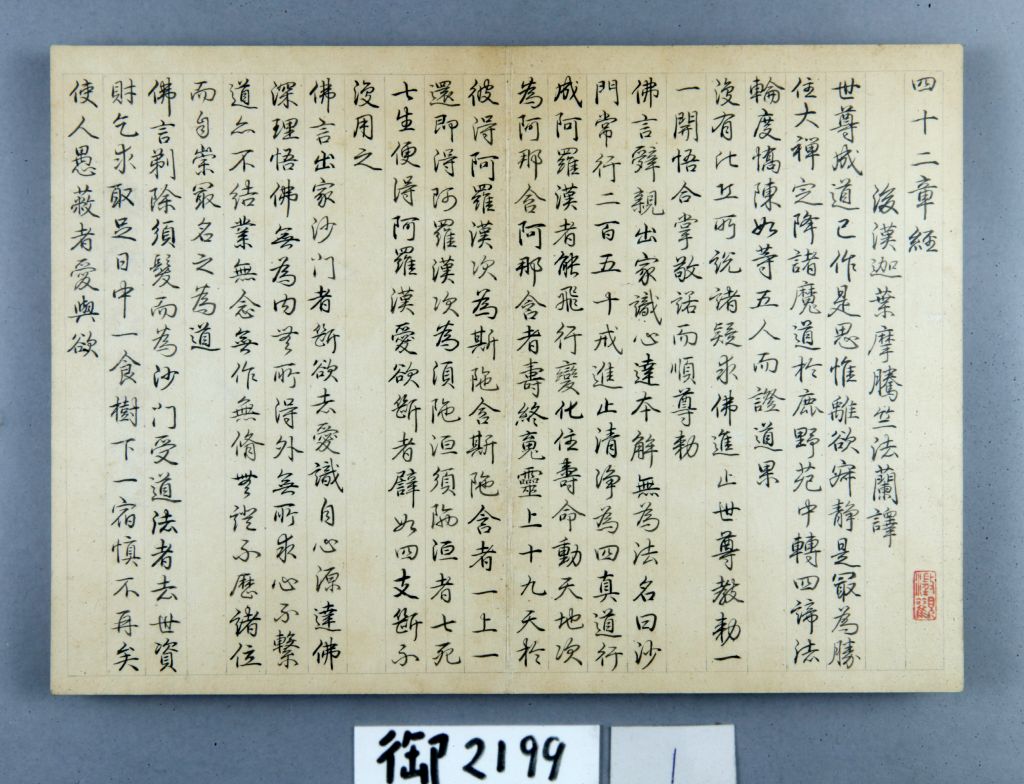 四十二章經
後漢迦葉摩騰竺法蘭譯
世尊成道已作是思惟離欲寂静是冣為勝
住大禪定降諸魔道於鹿野苑中轉四諦法
輪度憍陳如等五人而證道果
復有比丘所說諸疑求佛進止世尊教勅一
一開悟合掌敬諾而順尊勅
佛言辭親出家識心達本解無為法名曰沙
門常行二百五十戒進止清淨為四真道行
成阿羅漢者能飛行變化住壽命動天地次
為阿那含阿那含者壽終䰟靈上十九天於
彼得阿羅漢次為斯陁含斯陁含者一上一
還即得阿羅漢次為湏陁洹須陁洹者七死
七生便得阿羅漢愛欲斷者譬如四支斷不
復用之
佛言出家沙门者斷欲去愛識自心源達佛
深理悟佛無為内無所得外無所求心不繫
道亦不結業無念無作無脩無證不歷諸位
而自崇冣名之為道
佛言剃除須髮而為沙门受道法者去世資
財乞求取足日中一食樹下一宿慎不再矣
使人愚蔽者愛與欲
御2199
1